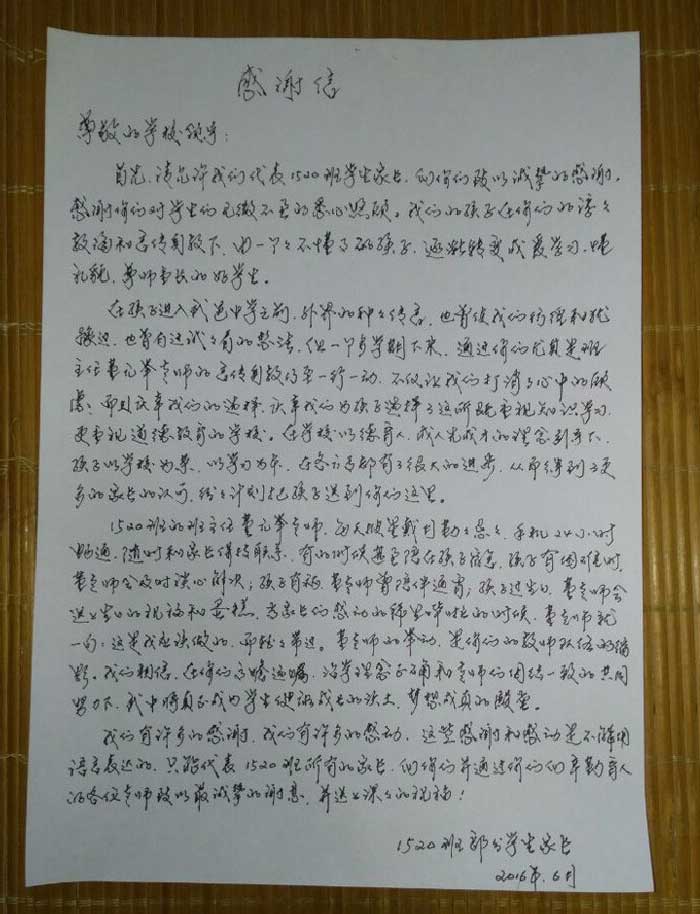 感谢信
尊敬的学校领导：
首先，请允许我们代表1520班学生家长，向你们致以诚挚的感谢，
感谢你们对学生们无微不至的关心照顾。我们的孩子在你们的谆々
教诲和言传身教下，由一个々不懂事的孩子，逐渐转变成爱学习、懂
礼貌，尊师重长的好学生。
在孩子进入我邑中学之前，外界的种々传言，也曾使我们彷徨和犹
豫过，也曾有过试々看的想法，但一个多学期下来，通过你们尤其是班
主任董元举老师的言传身教乃至一行一动，不仅让我们打消了心中的顾
虑，而且庆幸我们的选择，庆幸我们为孩子选择了这所既重视知识学习，
更重视道德教育的学校。在学校以德育人，成人先成才的理念引导下，
孩子以学校为家，以学习为乐，在各方面都有了很大的进步，从而得到了更
多的家长的认可，纷々计划把孩子送到你们这里。
1520班的班主任董元举老师，每天披星戴月勤々恳々，手机24小时
畅通，随时和家长保持联系，有的时候甚至陪在孩子宿舍，孩子有困难时，
董老师会及时谈心解决；孩子有病，董老师曾陪伴通宵；孩子过生日，董老师会
送上生日的祝福和蛋糕，当家长们感动的稀里哗啦的时候，董老师就
一句：这是我应该做的，而轻々带过。董老师的举动，是你们的教师队伍的缩
影。我们相信，在你们高瞻远瞩，治学理念正确和老师们团结一致的共同
努力下，我中将真正成为学生健康成长的沃土，梦想成真的殿堂。
我们有许多的感谢，我们有许多的感动，这些感谢和感动是不能用
语言表达的，只能代表1520班所有的家长，向你们并通过你们向辛勤育人
的各位老师致以最诚挚的谢意，并送上深々的祝福！
1520班部分学生家长
2016年.6月